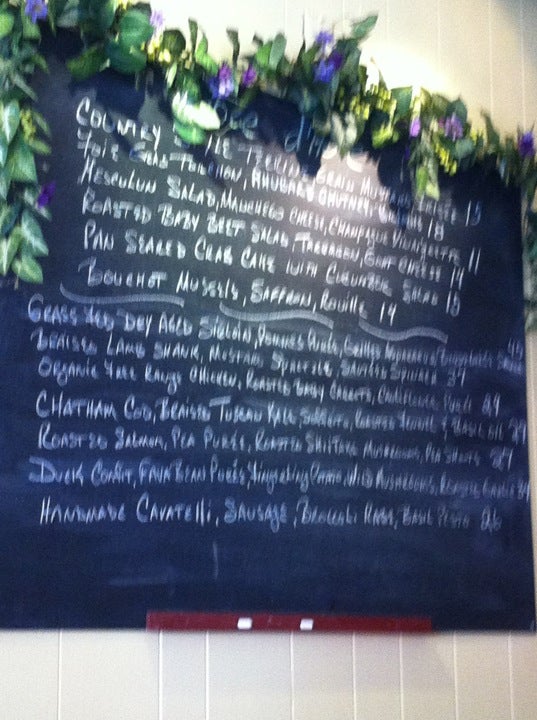 COUNTRY STYLE TERRINE, GRAIN MUSTARD, 13
FOIE GRAS TORCHON, RHUBARB CHUTNEY, 18
MESCULUN SALAD, MANCHEGO CHEESE, CHAMPAGNE VINAIGRETTE 11
ROASTED BABY BEET SALAD TARRAGON, GOAT CHEESE 14
PAN SEARED CRAB CAKE WITH CUCUMBER SALAD
BOUCHOT MUSSELS, SAFFRON, ROUILLE 14
GRASS FED DRY AGED SIRLOIN, POMMES GRILLED
BRAISED LAMB SHANK, MUSTARD SPAETZLE, SAUTEED SPINACH
ORGANIC FREE RANGE CHICKEN, ROASTED BABY CARROTS, CAULIFLOWER PUREE 29
CHATHAM COD, BRAISED TUSCAN KALE, ROASTED & BASIL OIL
ROASTED SALMON, PEA PURÉE, ROASTED SHIITAKE MUSHROOMS, PEA SHOOTS 27
DUCK CONFIT, FAVA BEAN PURÉE, FINGERLING POTATO, WILD MUSHROOMS, ROASTED GARLIC
HANDMADE CAVATELLI, SAUSAGE, BROCCOLI RABE, BASIL PESTO 26